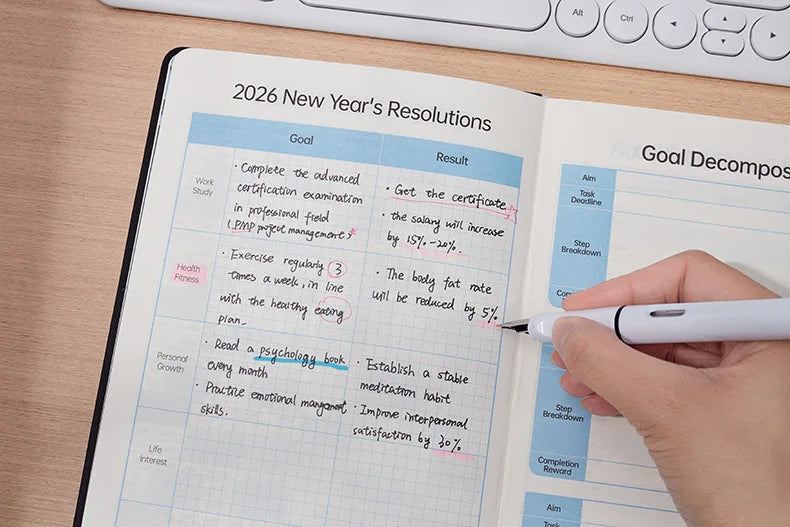 Alt
Ctrl
2026 New Year's Resolutions
Goal
Result
Work
Study
· Complete the advanced
certification examination
in professional field
(PMP project management)*
· Get the certificate
· the salary will increase
by 15%-20%.
Health
Fitness
· Exercise regularly 3
times a week, in line
with the healthy eating
plan.
· The body fat rate
will be reduced by 5%.
Personal
Growth
· Read a psychology book
every month
· Practice emotional mangement
skills.
· Establish a stable
meditation habit
· Improve interpersonal
satisfaction by 30%
Life
Interest
Goal Decompos
Aim
Task
Deadline
Step
Breakdown
Step
Breakdown
Completion
Reward
Aim
Task